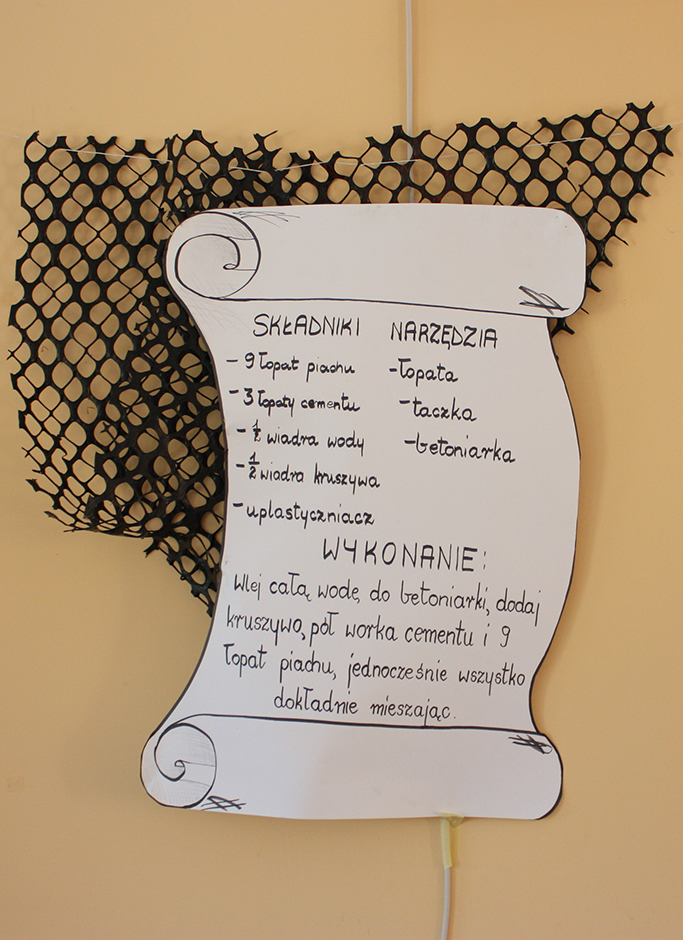 SKŁADNIKI
- 9 łopat piachu
- 3 łopaty cementu
- ½ wiadra wody
- ½ wiadra kruszywa
- uplastyczniacz
NARZĘDZIA
- łopata
- taczka
- betoniarka
WYKONANIE:
Wlej całą wodę do betoniarki, dodaj
kruszywo, pół worka cementu i 9
łopat piachu, jednocześnie wszystko
dokładnie mieszając.